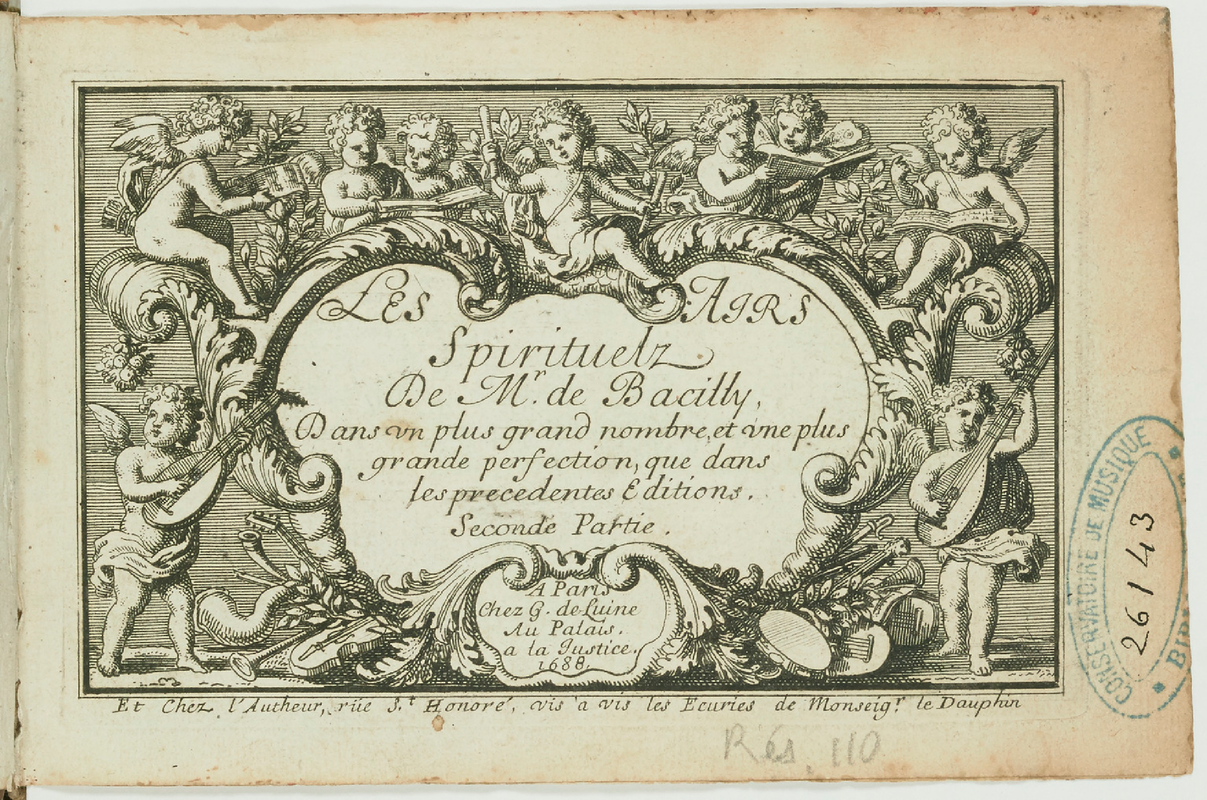 LES AIRS
Spirituelz
De M.r de Bacilly,
Dans vn plus grand nombre, et vne plus
grande perfection, que dans
les precedentes Editions.
Seconde Partie.
A Paris
Chez G. de Luine
Au Palais.
a la Justice.
1688.
Et Chez l'Autheur, rüe S.t Honoré, vis a vis les Ecuries de Monseig.r le Dauphin
CONSERVATOIRE DE MUSIQUE
26143
Rés. 110